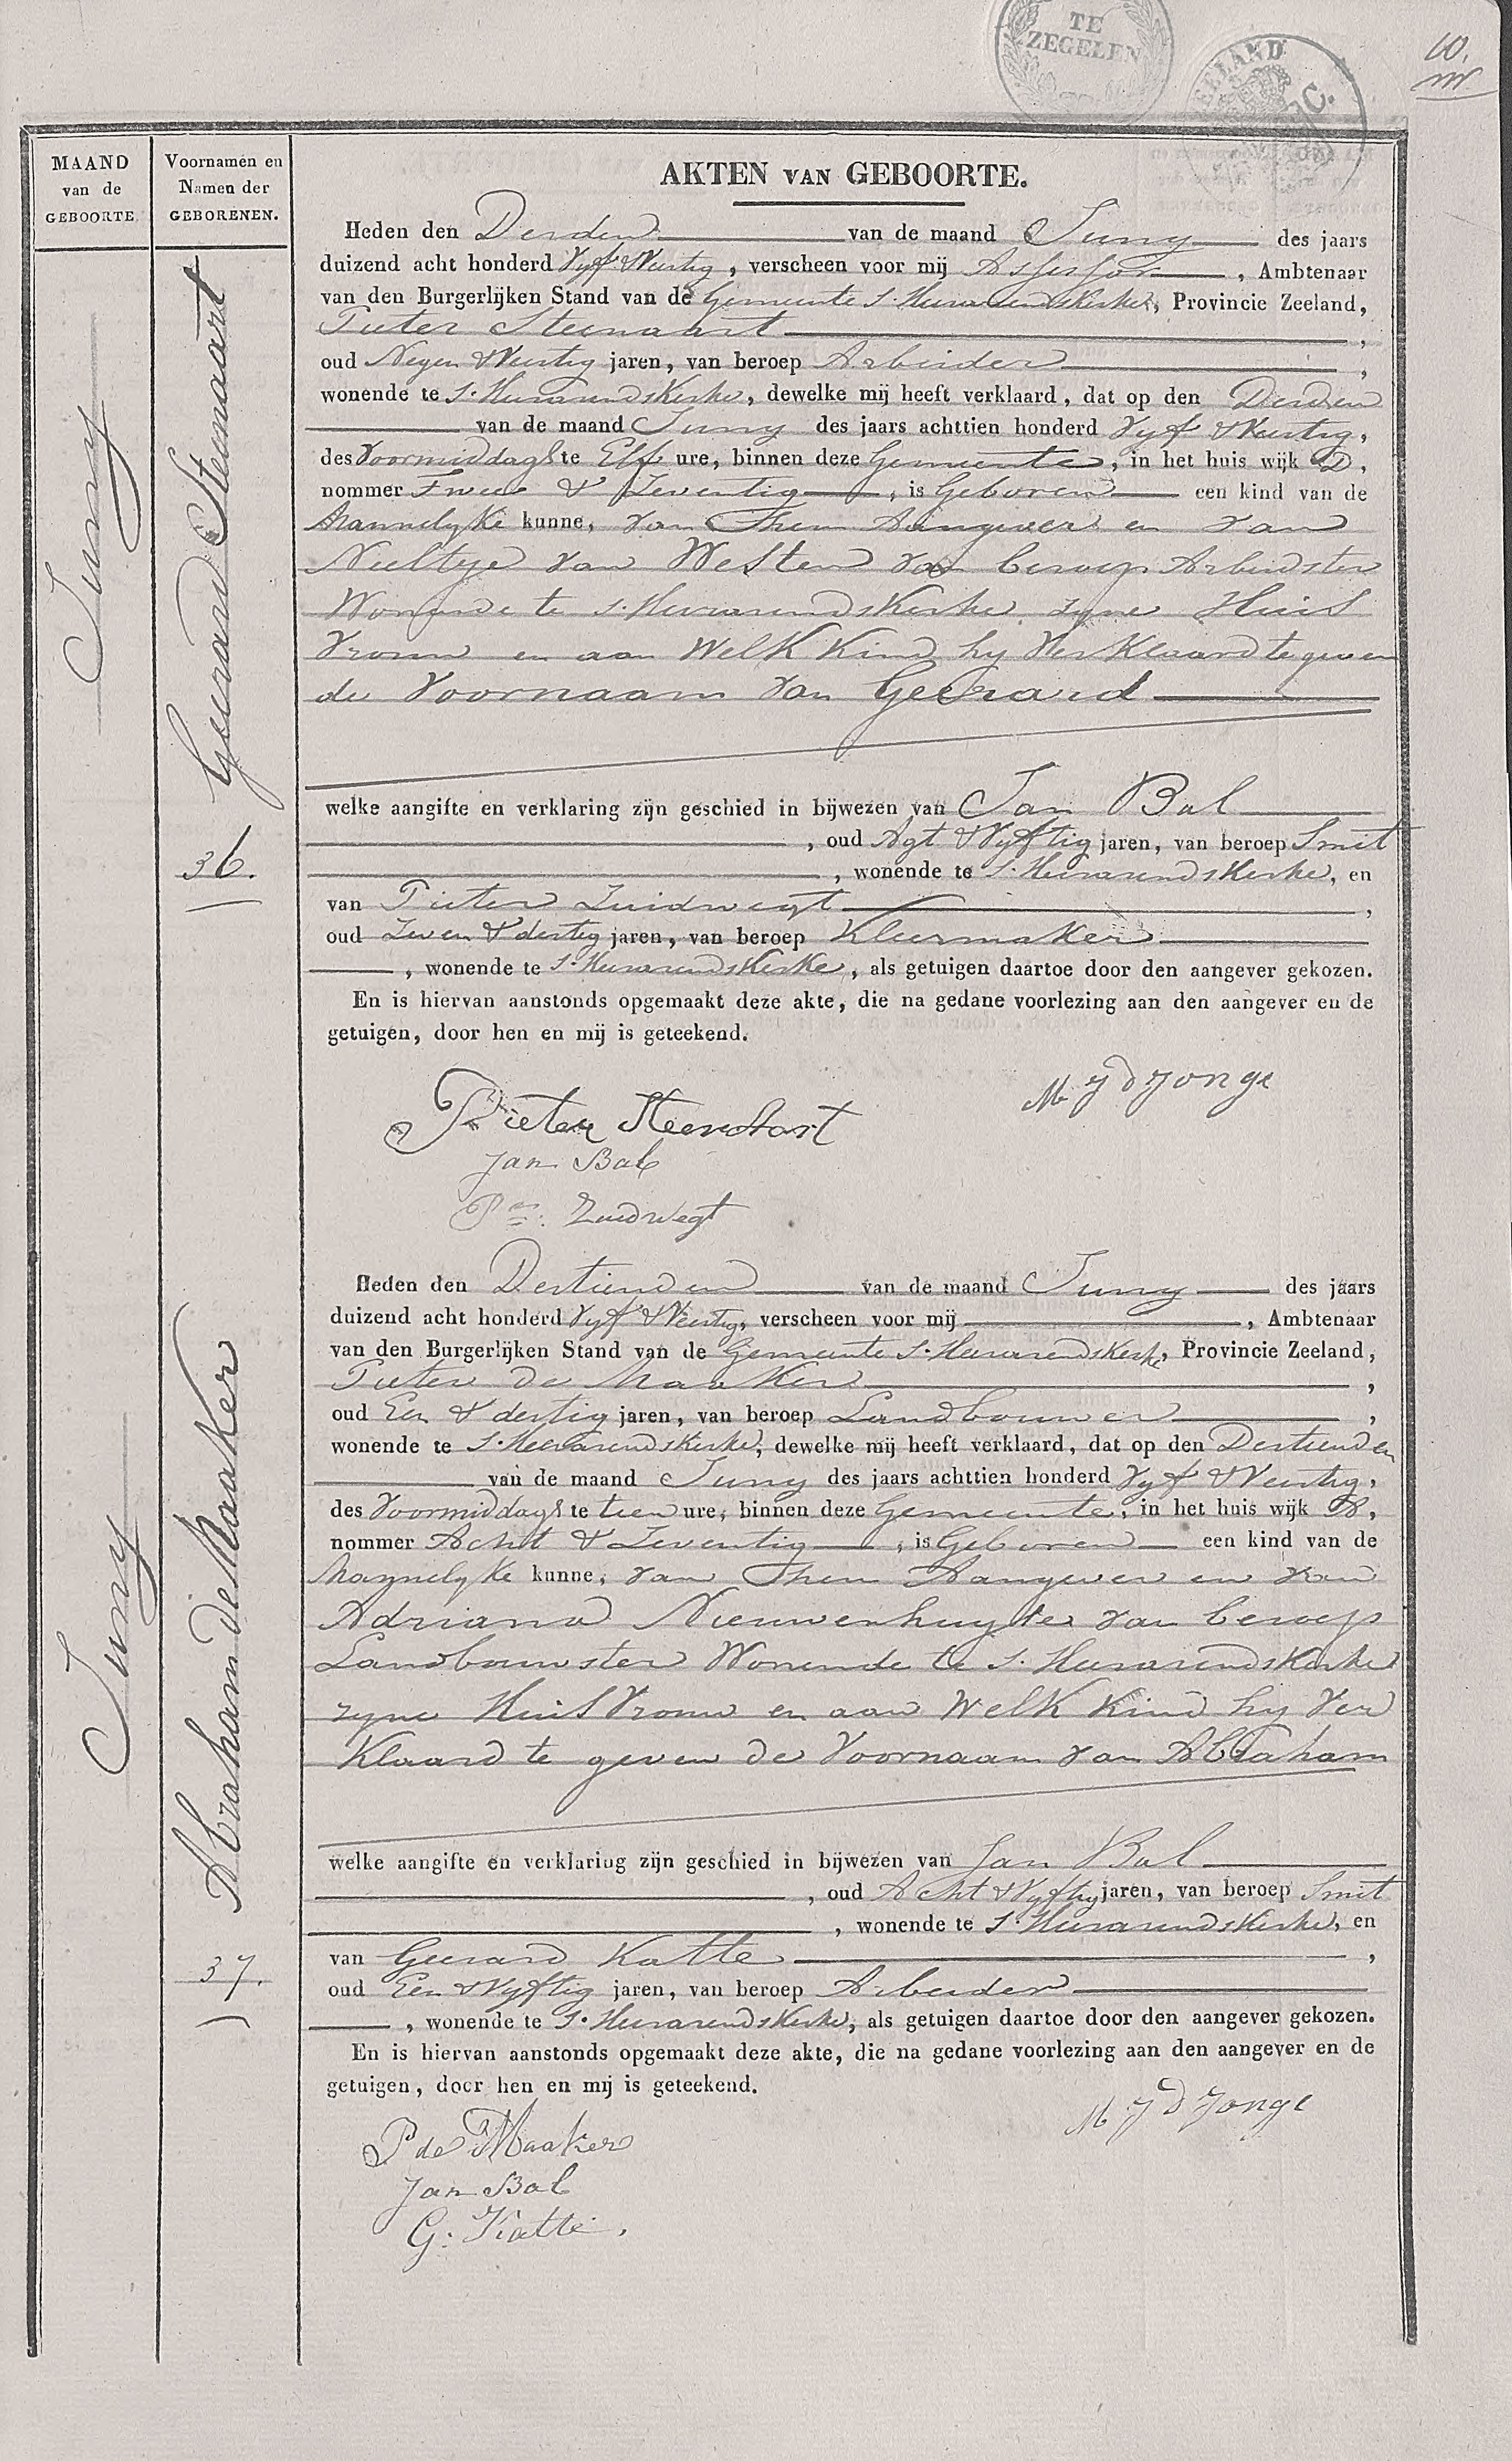 TE
ZEGELEN
ZEELAND
10.
MAAND
van de
GEBOORTE.
Voornamen en
Namen der
GEBORENEN.
AKTEN VAN GEBOORTE.
Juny
Geerard Steenaart
36.
Heden den Derden van de maand Juny des jaars
duizend acht honderd Vyf & Veertig, verscheen voor mij Assessor, Ambtenaar
van den Burgerlijken Stand van de Gemeente S. Heerarendskerke, Provincie Zeeland,
Pieter Steenaart,
oud Negen & Veertig jaren, van beroep Arbeider,
wonende te S. Heerarendskerke, dewelke mij heeft verklaard, dat op den Derden
van de maand Juny des jaars achttien honderd Vyf & Veertig,
des Voormiddags te Elf ure, binnen deze Gemeente, in het huis wijk D,
nommer Twee & Zeventig, is Geboren een kind van de
Mannelyke kunne, van Hem Aangever en van
Neeltje van Westen van beroep Arbeidster
Wonende te S. Heerarendskerke zyne Huis
Vrouw en aan Welk Kind hy Verklaard te geven
de Voornaam van Geerard
welke aangifte en verklaring zijn geschied in bijwezen van Jan Bal
, oud Agt & Vyftig jaren, van beroep Smit
, wonende te S. Heerarendskerke, en
van Pieter Zuidwegt,
oud Zeven & dertig jaren, van beroep Kleermaker
, wonende te S. Heerarendskerke, als getuigen daartoe door den aangever gekozen.
En is hiervan aanstonds opgemaakt deze akte, die na gedane voorlezing aan den aangever en de
getuigen, door hen en mij is geteekend.
M J D Jonge
Pieter Steenaart
Jan Bal
Pr. Zuidwegt
Juny
Abraham de Maaker
37.
Heden den Dertienden van de maand Juny des jaars
duizend acht honderd Vyf & Veertig, verscheen voor mij, Ambtenaar
van den Burgerlijken Stand van de Gemeente S. Heerarendskerke, Provincie Zeeland,
Pieter de Maaker,
oud Een & dertig jaren, van beroep Landbouwer,
wonende te S. Heerarendskerke, dewelke mij heeft verklaard, dat op den Dertienden
van de maand Juny des jaars achttien honderd Vyf & Veertig,
des Voormiddags te tien ure, binnen deze Gemeente, in het huis wijk,
nommer Acht & Zeventig, is Geboren een kind van de
Mannelyke kunne, van Hem Aangever en van
Adriana Nieuwenhuyse van beroep
Landbouwster Wonende te S. Heerarendskerke
zyne Huis Vrouw en aan Welk Kind hy Ver
Klaard te geven de Voornaam van Abraham
welke aangifte en verklaring zijn geschied in bijwezen van Jan Bal
, oud Acht & Vyftig jaren, van beroep Smit
, wonende te S. Heerarendskerke, en
van Geerard Katte,
oud Een & Vyftig jaren, van beroep Arbeider
, wonende te S. Heerarendskerke, als getuigen daartoe door den aangever gekozen.
En is hiervan aanstonds opgemaakt deze akte, die na gedane voorlezing aan den aangever en de
getuigen, door hen en mij is geteekend.
M J D Jonge
P de Maaker
Jan Bal
G. Katte.